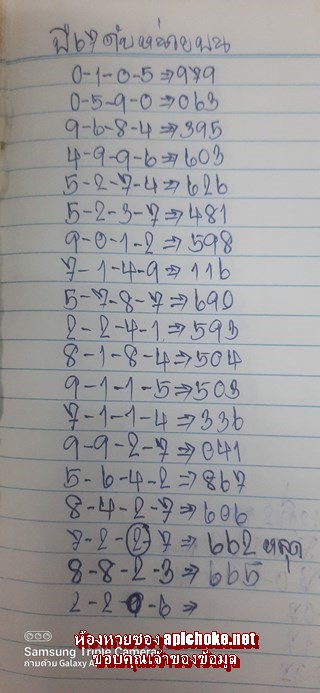 ปี67 ดับหน่วยบน
0-1-0-5⇒979
0-5-9-0⇒063
9-6-8-4⇒395
4-9-9-6⇒603
5-2-7-4⇒626
5-2-3-7⇒481
9-0-1-2⇒598
7-1-4-9⇒116
5-7-8-7⇒690
2-2-4-1⇒593
8-1-8-4⇒504
9-1-1-5⇒503
7-1-1-4⇒336
9-9-2-7⇒041
5-6-4-2⇒867
8-4-2-7⇒606
7-2-2-7⇒662 หลุด
8-8-2-3⇒665
2-2-0-6⇒
ห้องหวยซอง apichoke.net
Samsung Triple Camera
ถ่ายด้วย Galaxy A
ขอบคุณเจ้าของข้อมูล